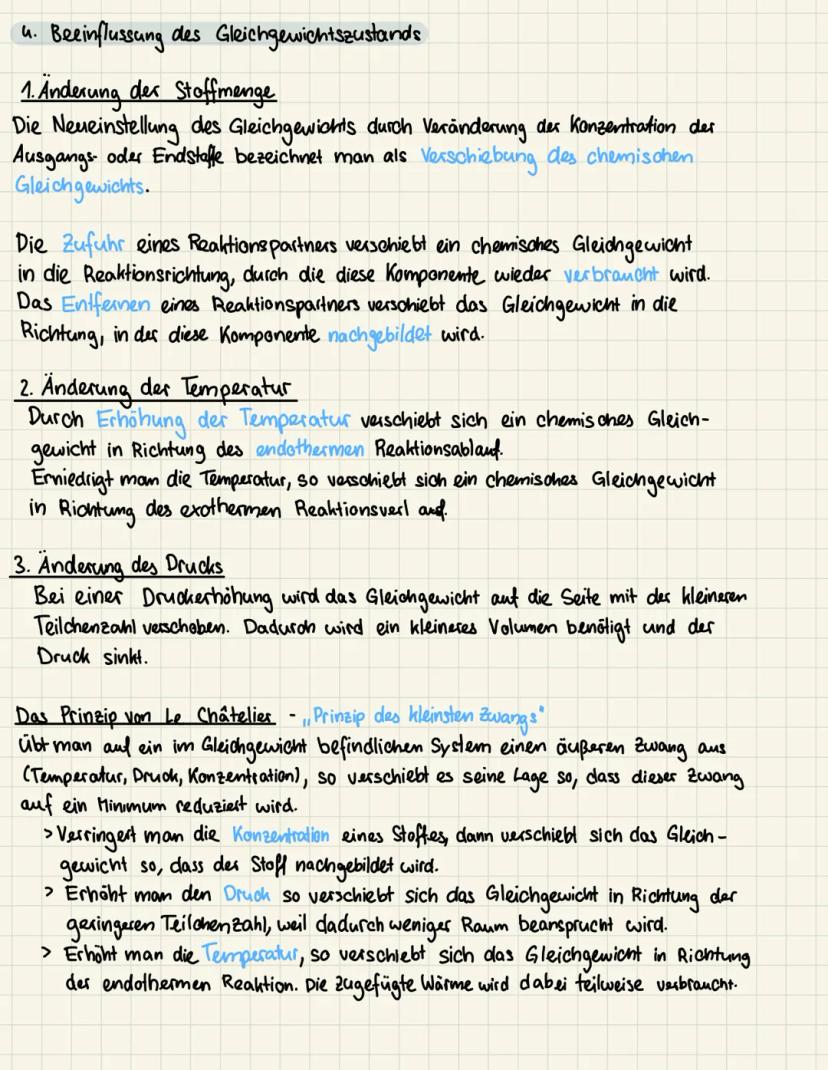 4. Beeinflussung des Gleichgewichtszustands
1. Änderung der Stoffmenge
Die Neueinstellung des Gleichgewichts durch Veränderung der Konzentration der
Ausgangs- oder Endstoffe bezeichnet man als Verschiebung des chemischen
Gleichgewichts.
Die Zufuhr eines Reaktionspartners verschiebt ein chemisches Gleichgewicht
in die Reaktionsrichtung, durch die diese Komponente wieder verbraucht wird.
Das Entfernen eines Reaktionspartners verschiebt das Gleichgewicht in die
Richtung, in der diese Komponente nachgebildet wird.
2. Änderung der Temperatur
Durch Erhöhung der Temperatur verschiebt sich ein chemisches Gleich-
gewicht in Richtung des endothermen Reaktionsablauf.
Erniedrigt man die Temperatur, so verschiebt sich ein chemisches Gleichgewicht
in Richtung des exothermen Reaktionsverlauf.
3. Änderung des Drucks
Bei einer Druckerhöhung wird das Gleichgewicht auf die Seite mit der kleineren
Teilchenzahl verschoben. Dadurch wird ein kleineres Volumen benötigt und der
Druck sinkt.
Das Prinzip von Le Châtelier - „Prinzip des kleinsten Zwangs"
Übt man auf ein im Gleichgewicht befindlichen System einen äußeren Zwang aus
(Temperatur, Druck, Konzentration), so verschiebt es seine Lage so, dass dieser Zwang
auf ein Minimum reduziert wird.
> Verringert man die Konzentration eines Stoffes, dann verschiebt sich das Gleich-
gewicht so, dass der Stoff nachgebildet wird.
> Erhöht man den Druck so verschiebt sich das Gleichgewicht in Richtung der
geringeren Teilchenzahl, weil dadurch weniger Raum beansprucht wird.
> Erhöht man die Temperatur, so verschiebt sich das Gleichgewicht in Richtung
der endothermen Reaktion. Die zugefügte Wärme wird dabei teilweise verbraucht.